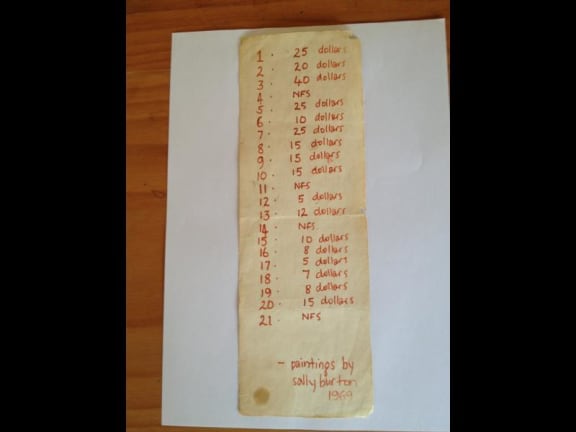 1. 25 dollars
2. 20 dollars
3. 40 dollars
4. NFS
5. 25 dollars
6. 10 dollars
7. 25 dollars
8. 15 dollars
9. 15 dollars
10. 15 dollars
11. NFS
12. 5 dollars
13. 12 dollars
14. NFS
15. 10 dollars
16. 8 dollars
17. 5 dollars
18. 7 dollars
19. 8 dollars
20. 15 dollars
21. NFS
- paintings by
sally burton
1969